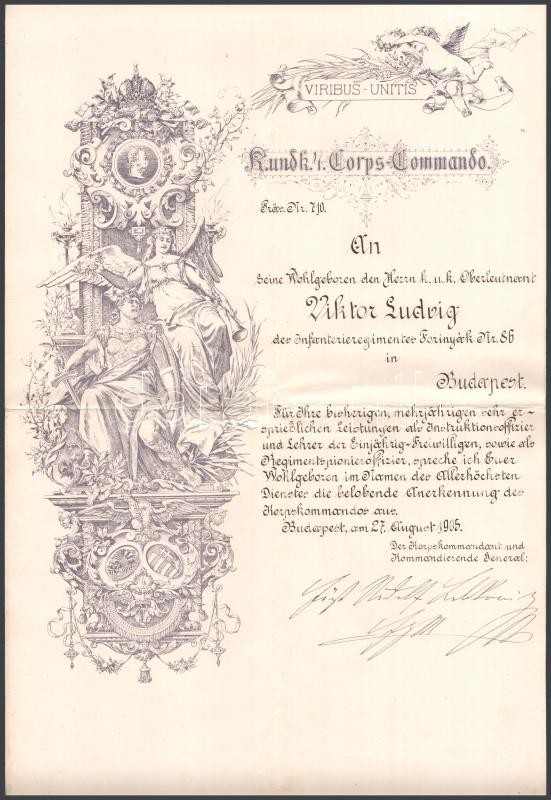 VIRIBUS-UNITIS
K. und k. 4. Corps-Commando.
Präs. Nr. 710.
An
Seine Wohlgeboren den Herrn k. u. k. Oberleutnant
Viktor Ludvig
des Infanterieregimentes Forinyák Nr. 86
in
Budapest.
Für Ihre bisherigen, mehrjährigen sehr er-
sprießlichen Leistungen als Instruktionsoffizier
und Lehrer der Einjährig-Freiwilligen, sowie als
Regimentspionieroffizier, spreche ich Euer
Wohlgeboren im Namen des Allerhöchsten
Dienstes die belobende Anerkennung des
Korpskommandos aus.
Budapest, am 27. August 1905.
Der Korpskommandant und
Kommandierende General: